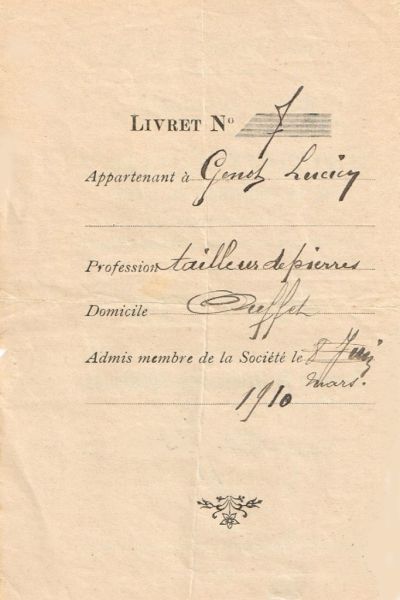 LIVRET Nº 7
Appartenant à Genot Lucien
Profession tailleur de pierres
Domicile Ouffet
Admis membre de la Société le 8 Juin
mars.
1910